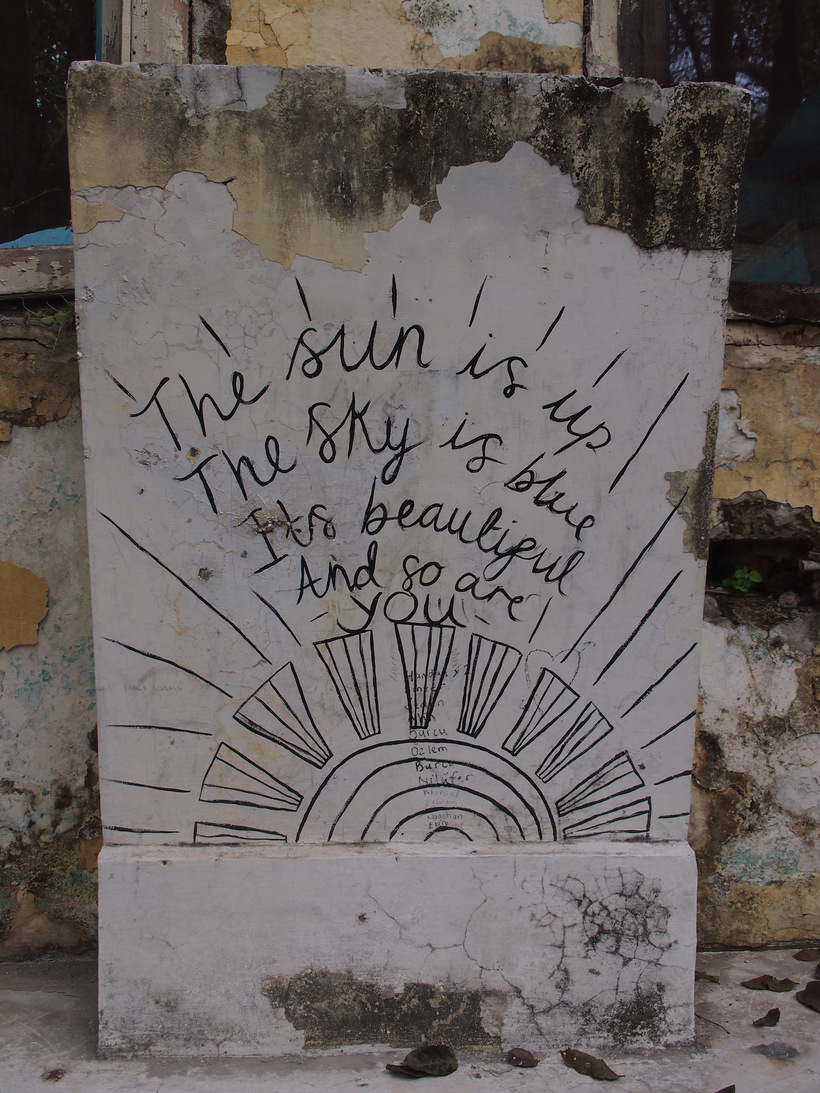 The sun is up
The sky is blue
It's beautiful
And so are
you
Burcu
Özlem
Burcu
Nilüfer